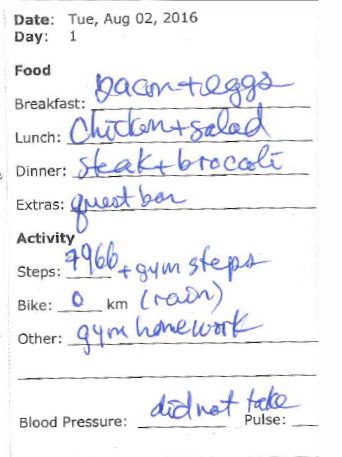 Date: Tue, Aug 02, 2016
Day: 1
Food
Breakfast: Bacon + eggs
Lunch: Chicken + salad
Dinner: steak + brocoli
Extras: quest bar
Activity
Steps: 7966 + gym steps
Bike: 0 km (rain)
Other: gym homework
Blood Pressure: did not take Pulse: